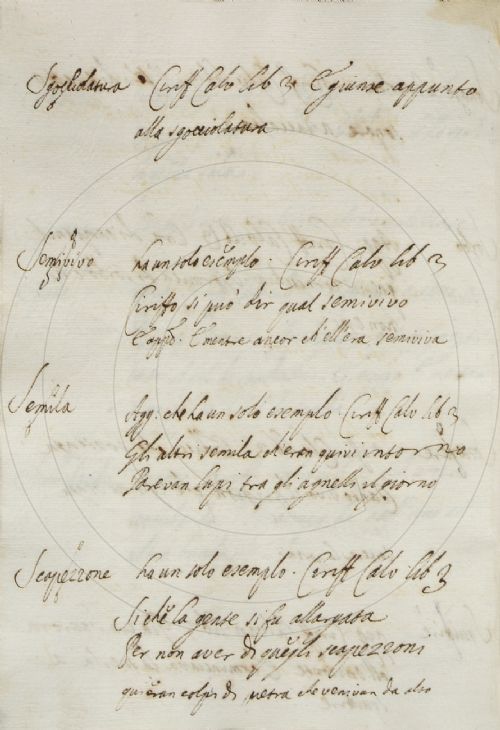 Sgocciolatura Ciriff Calv lib 3 E giunse appunto
alla sgocciolatura
Semivivo ha un solo esempio. Ciriff Calv lib 3
Ciriffo si può dir qual semivivo
E appo. E mentre ancor ch'ell'era semiviva
Semila Agg. che ha un solo esempio Ciriff Calv lib 3
Gli altri semila ch'eran quivi intorno
Parevan lupi tra gli agnelli il giorno
Scapezzone ha un solo esempio. Ciriff Calv lib 3
Sichè la gente si fu allargata
Per non aver di quegli scapezzoni
qui eran colpi di pietra che venivan da alto